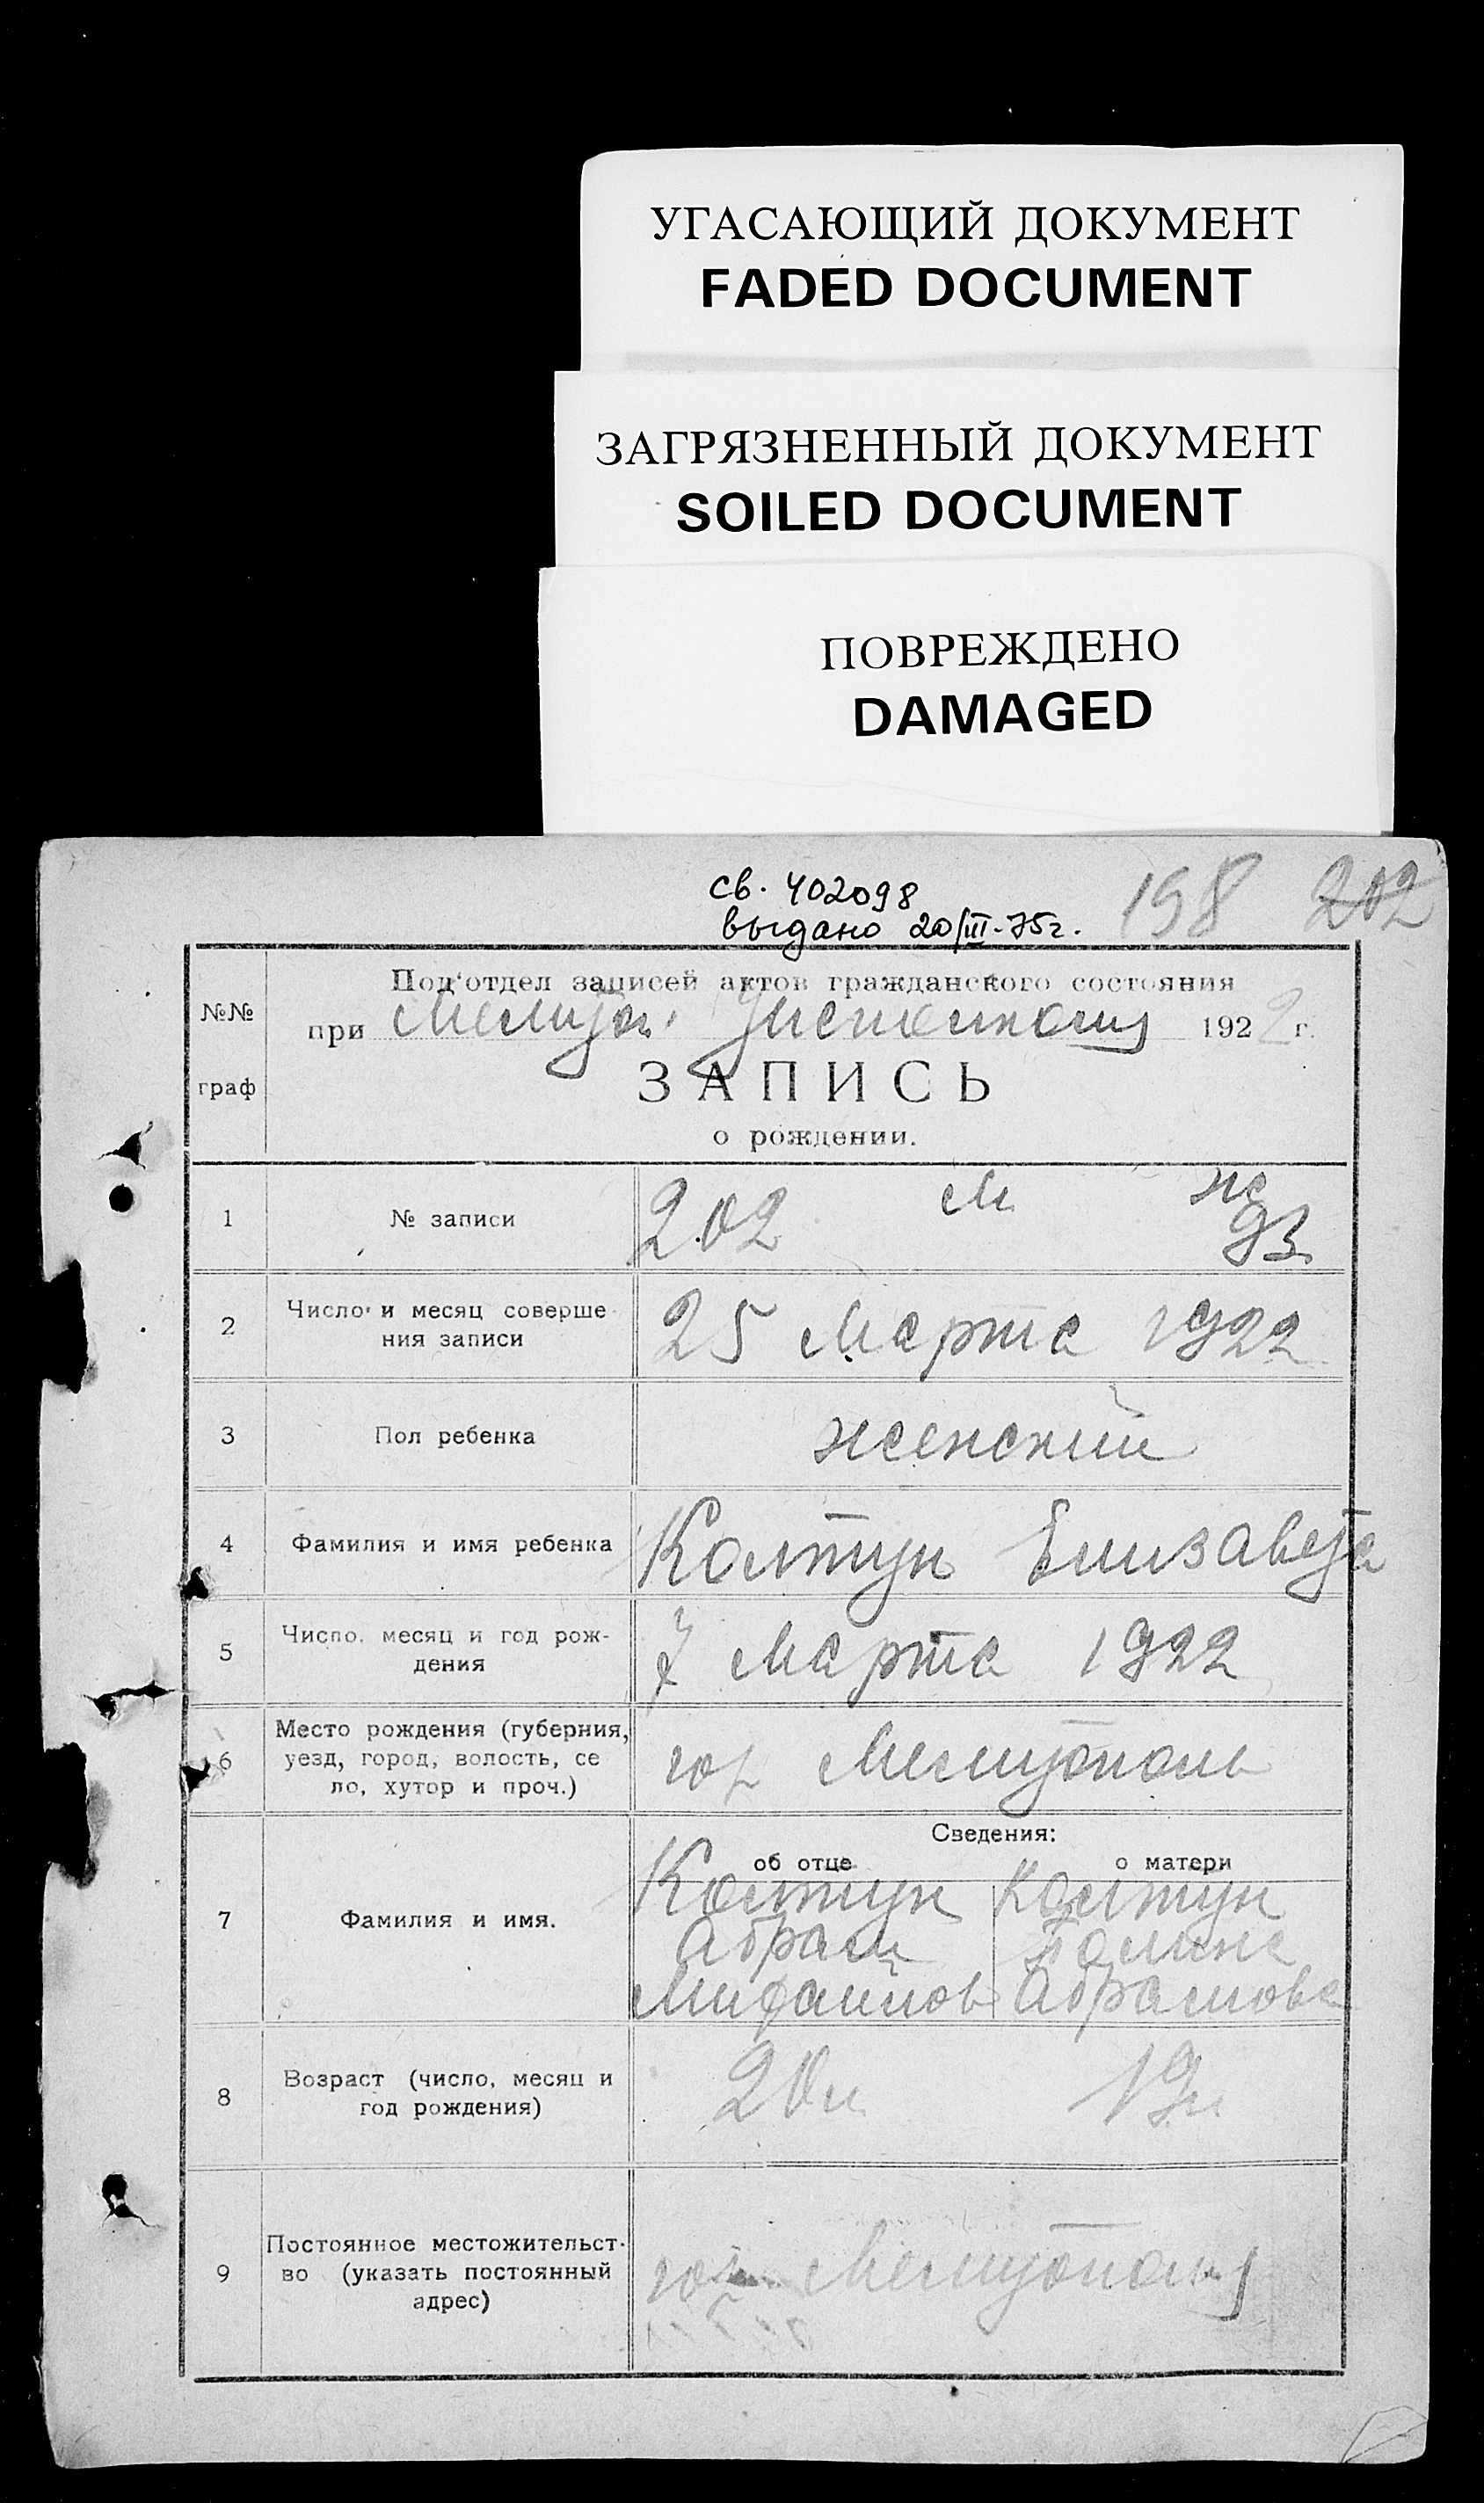 УГАСАЮЩИЙ ДОКУМЕНТ
FADED DOCUMENT
ЗАГРЯЗНЕННЫЙ ДОКУМЕНТ
SOILED DOCUMENT
ПОВРЕЖДЕНО
DAMAGED
св. 402098
выдано 20/III-75г.
198 202
№№ граф
Под'отдел записей актов гражданского состояния
при Мелитоп. 1922 г.
ЗАПИСЬ
о рождении.
1 № записи 202 м ж 93
2 Число и месяц соверше
ния записи
25 Марта 1922
3 Пол ребенка женский
4 Фамилия и имя ребенка Колтун Елизавета
5 Число, месяц и год рож-
дения
7 Марта 1922
6 Место рождения (губерния,
уезд, город, волость, се
ло, хутор и проч.)
гор Мелитополь
Сведения:
об отце о матери
7 Фамилия и имя.
Колтун Колтун
Абрам
Абрамовна
8 Возраст (число, месяц и
год рождения)
20 л 19 л
9 Постоянное местожительст-
во (указать постоянный
адрес)
гор Мелитополь